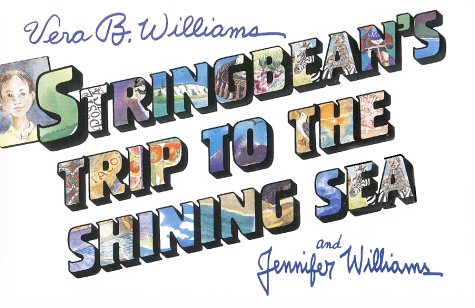 Vera B. Williams
STRINGBEAN'S
TRIP TO THE
SHINING SEA
and
Jennifer Williams